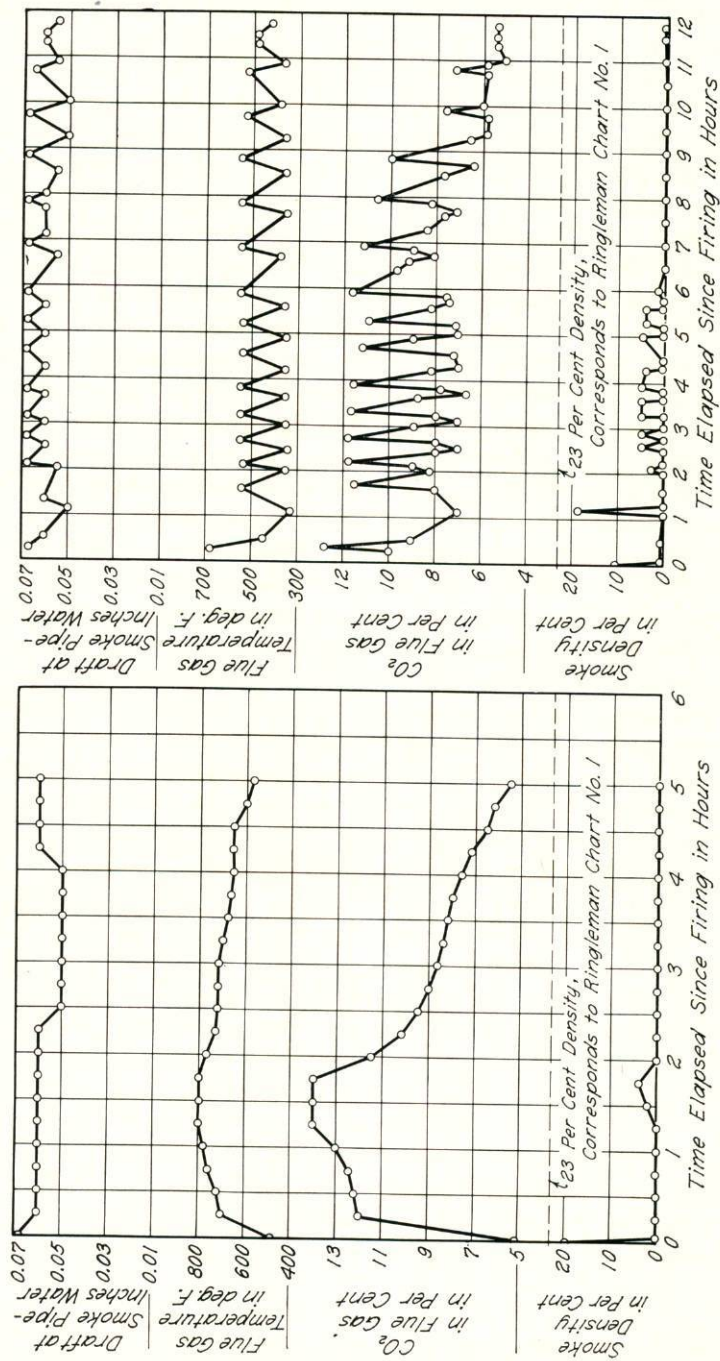 Draft at
Smoke Pipe-
Inches Water
0.07
0.05
0.03
0.01
Flue Gas
Temperature
in deg. F.
800
600
400
CO₂
in Flue Gas
in Per Cent
13
11
9
7
5
Smoke
Density
in Per Cent
20
0
23 Per Cent Density,
Corresponds to Ringleman Chart No. 1
0 1 2 3 4 5 6
Time Elapsed Since Firing in Hours
Draft at
Smoke Pipe-
Inches Water
0.07
0.05
0.03
0.01
Flue Gas
Temperature
in deg. F.
700
500
300
CO₂
in Flue Gas
in Per Cent
12
10
8
6
4
Smoke
Density
in Per Cent
20
10
0
23 Per Cent Density,
Corresponds to Ringleman Chart No. 1
0 1 2 3 4 5 6 7 8 9 10 11 12
Time Elapsed Since Firing in Hours